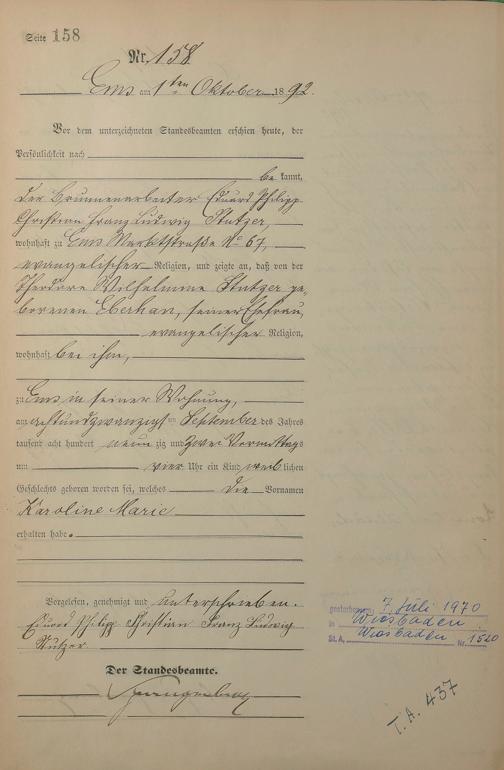 Seite 158
Nr. 158
Ems am 1ten Oktober 1892.
Vor dem unterzeichneten Standesbeamten erschien heute, der
Persönlichkeit nach
be kannt,
der Brunnenarbeiter Eduard Philipp
Christian Franz Ludwig Stutzer,
wohnhaft zu Ems Marktstraße No 67,
evangelischer Religion, und zeigte an, daß von der
Theodore Wilhelmine Stutzer ge-
borenen Eberhan, seiner Ehefrau,
evangelischer Religion,
wohnhaft bei ihm,
zu Ems in seiner Wohnung,
am achtundzwanzigsten September des Jahres
tausend acht hundert neun zig und zwei Vormittags
um vier Uhr ein Kind weib lichen
Geschlechts geboren worden sei, welches die Vornamen
Karoline Marie
erhalten habe.
Vorgelesen, genehmigt und unterschrieben.
Eduard Philipp Christian Franz Ludwig
Stutzer
Der Standesbeamte.
gestorben am 7. Juli 1970
in Wiesbaden
St. A. Wiesbaden Nr. 1520
T. A. 437